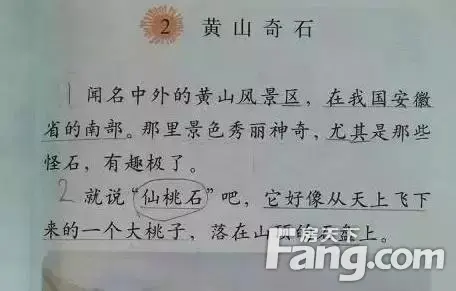 2 黄山奇石
1 闻名中外的黄山风景区，在我国安徽
省的南部。那里景色秀丽神奇，尤其是那些
怪石，有趣极了。
2 就说“仙桃石”吧，它好像从天上飞下
来的一个大桃子，落在山顶的石盘上。
房天下
Fang.com